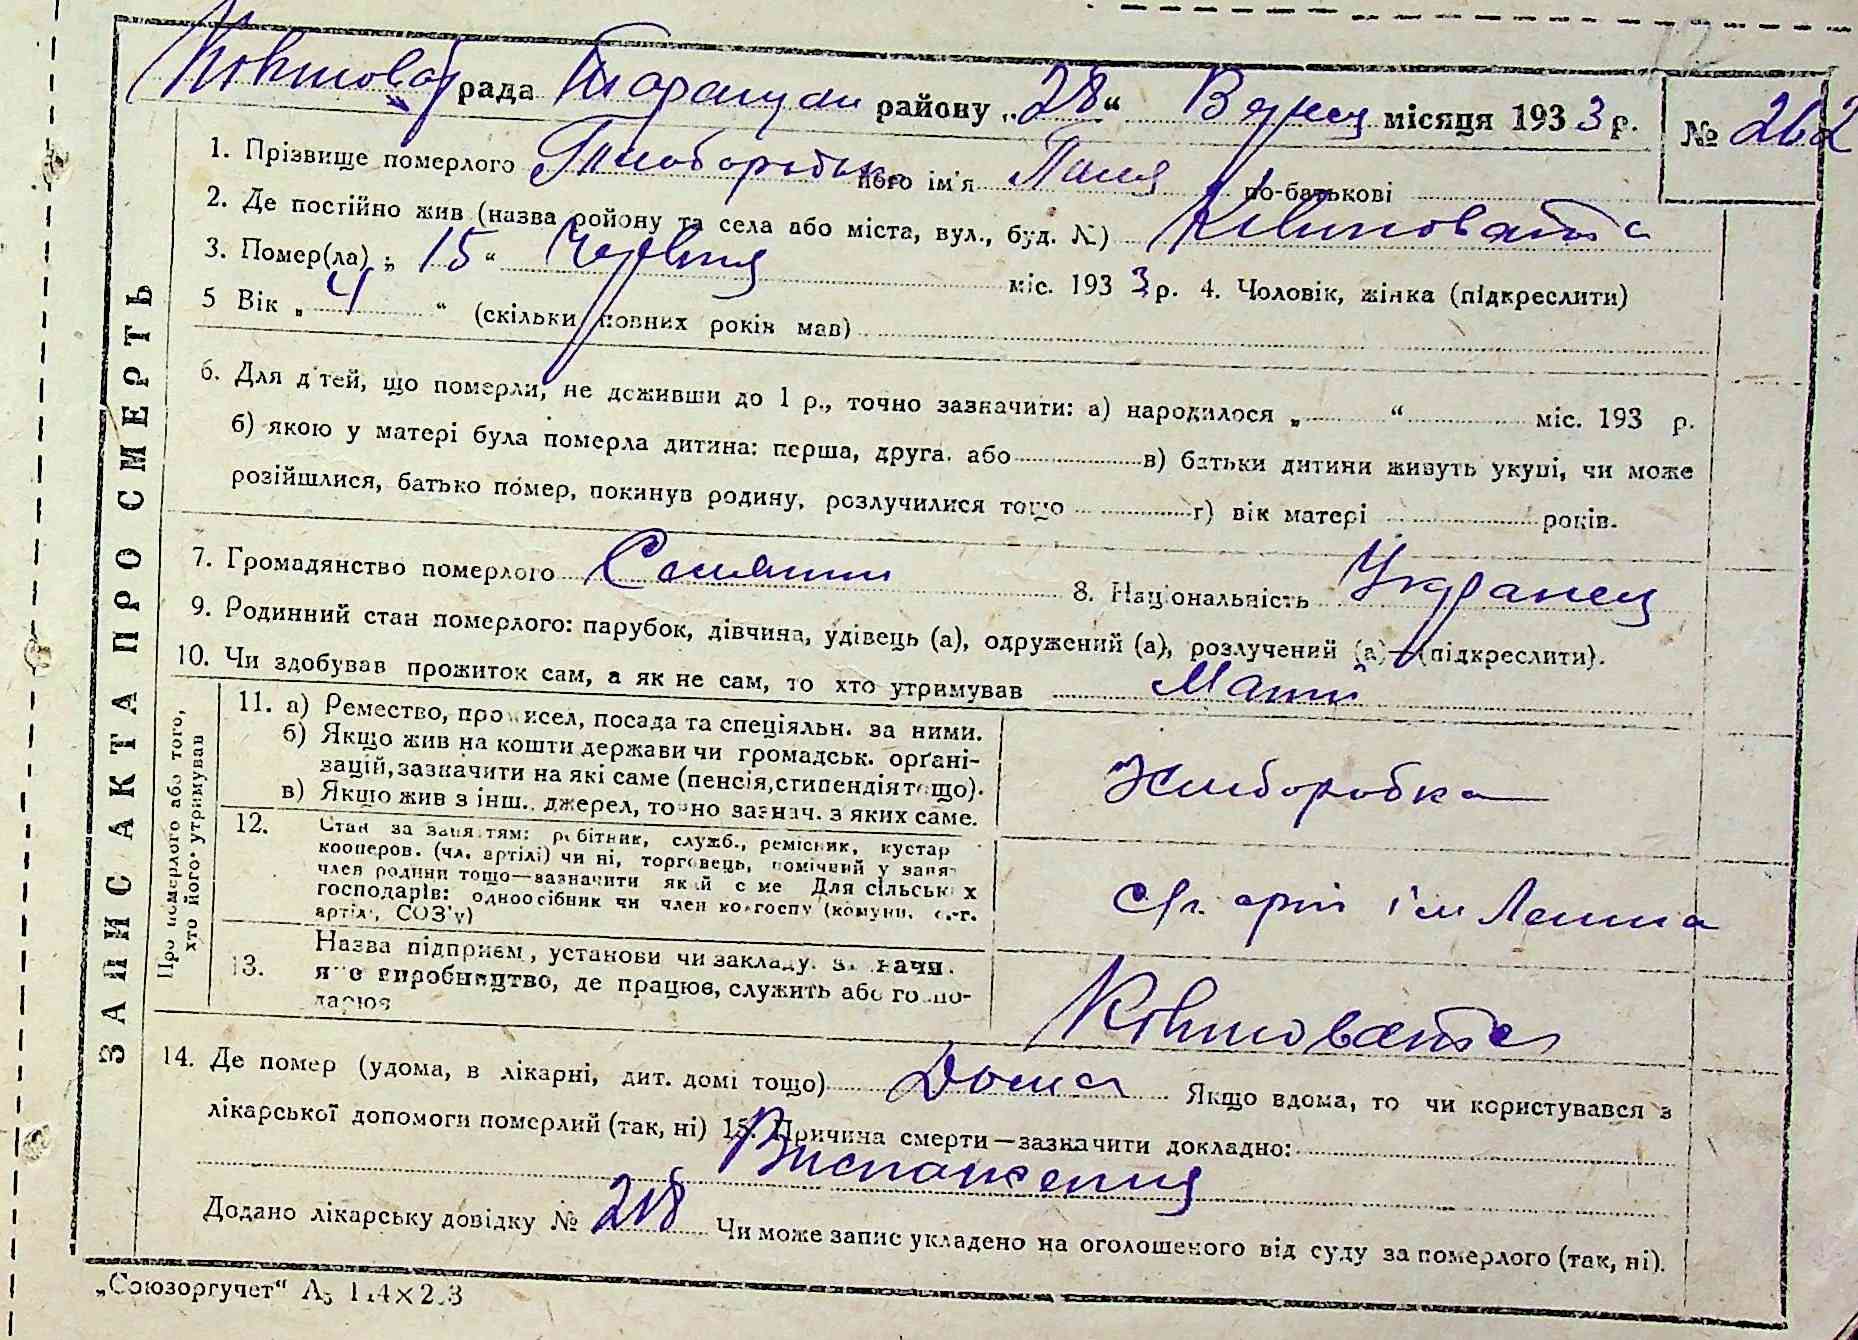 рада району „28“ місяця 1933 р. № 262
1. Прізвище померлого його ім'я по-батькові
2. Де постійно жив (назва району та села або міста, вул., буд. №)
3. Помер(ла) „15“ Червня міс. 1933 р. 4. Чоловік, жінка (підкреслити)
5 Вік „4“ (скільки повних років мав)
6. Для дітей, що померли, не доживши до 1 р., точно зазначити: а) народилося „ “ міс. 193 р.
б) якою у матері була померла дитина: перша, друга. або в) батьки дитини живуть укупі, чи може
розійшлися, батько помер, покинув родину, розлучилися тощо г) вік матері років.
7. Громадянство померлого 8. Національність Українец
9. Родинний стан померлого: парубок, дівчина, удівець (а), одружений (а), розлучений (а)—(підкреслити).
10. Чи здобував прожиток сам, а як не сам, то хто утримував Мати
ЗАПИС АКТА ПРО СМЕРТЬ
Про померлого або того,
хто його утримував
11. а) Ремество, промисел, посада та спеціяльн. за ними.
б) Якщо жив на кошти держави чи громадськ. орґані-
зацій, зазначити на які саме (пенсія, стипендія тощо).
в) Якщо жив з інш. джерел, точно зазнач. з яких саме.
Хліборобка
12. Стан за заняттям: робітник, служб., ремісник, кустар
кооперов. (чл. артілі) чи ні, торговець, помічний у заня
член родини тощо—зазначити який саме Для сільських
господарів: одноосібник чи член колгоспу (комуни, с.-г.
артілі, СОЗ'у)
13. Назва підприєм., установи чи закладу.
виробництво, де працює, служить або госпо-
дарює
14. Де помер (удома, в лікарні, дит. домі тощо) Дома Якщо вдома, то чи користувався з
лікарської допомоги померлий (так, ні) 15. Причина смерти—зазначити докладно:
Виснаження
Додано лікарську довідку № Чи може запис укладено на оголошеного від суду за померлого (так, ні).
„Союзоргучет“